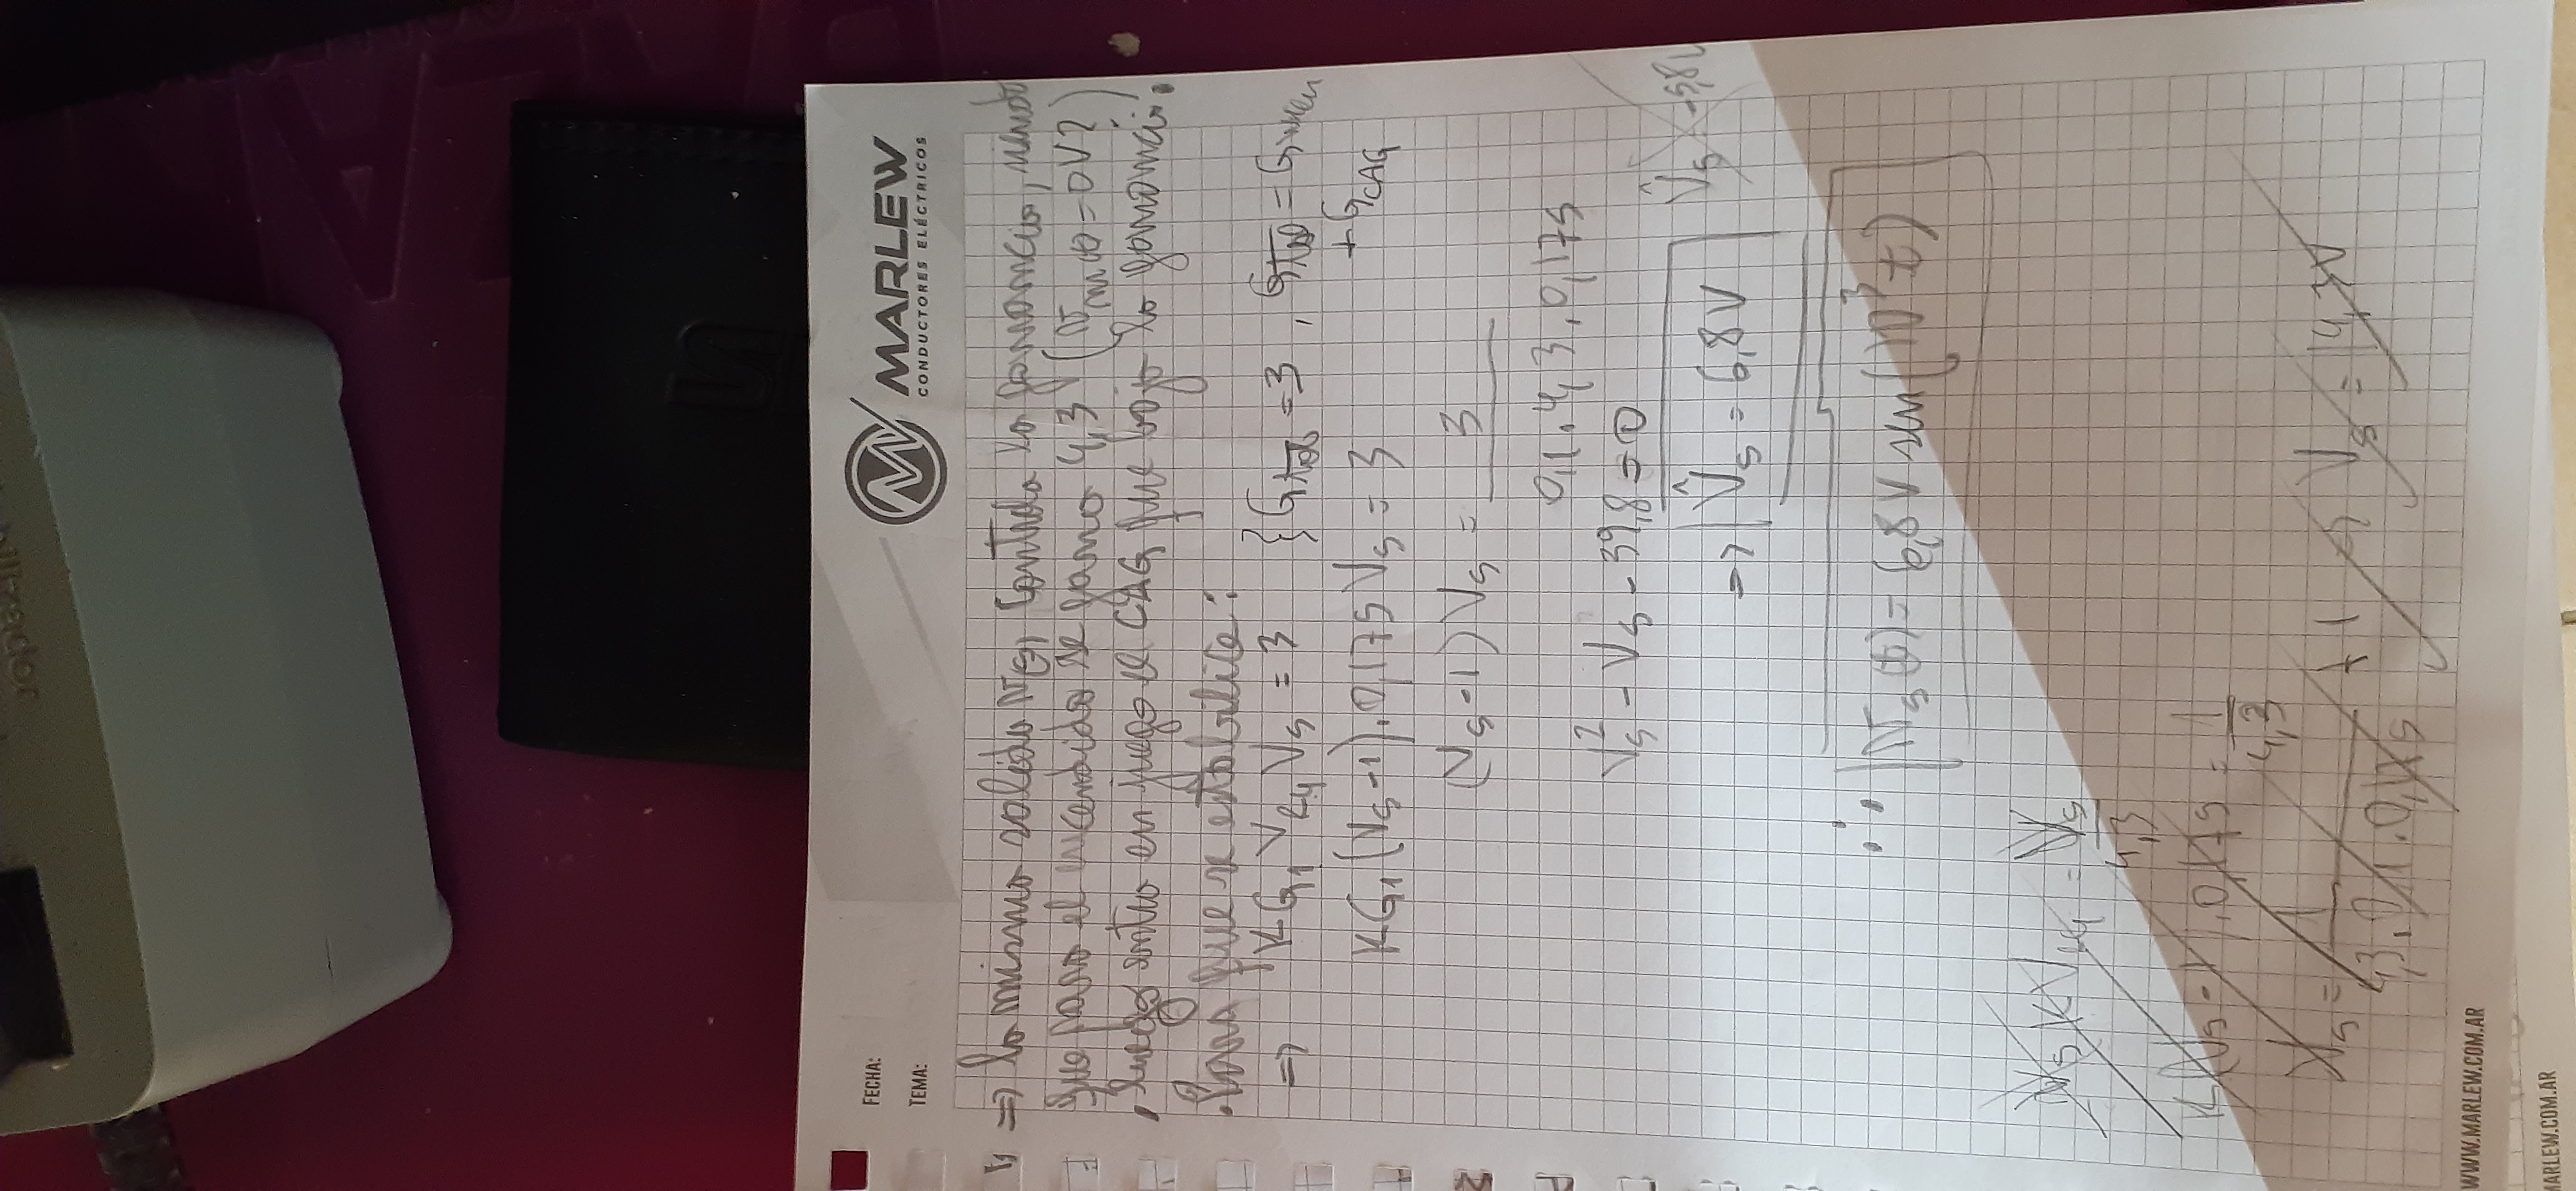 bilizador
FECHA:
TEMA:
MARLEW
CONDUCTORES ELÉCTRICOS
⇒ la misma salida controla la ganancia, siendo
que para el encendido se gana 4,3 (= 0V?)
, luego entra en juego el CAG que baja la ganancia.
. Para que se estabilice:
⇒ K G₁ V_R4 V_S = 3 } G_tot = 3 , G_tot = G_wien
+ G_CAG
K G₁ (V_S - 1) . 0,175 V_S = 3
(V_S - 1) V_S = 3
0,1 . 4,3 . 0,175
V_S² - V_S - 39,8 = 0
⇒ V̂_S = 6,8 V
V̂_S = -5,8 V
∴ v_S(t) = 6,8 V sen(10³ t)
V_S K V_R4 = V_S / 4,3
K (V_S - 1) . 0,175 = 1 / 4,3
V_S = 1 / 4,3 . 0,1 . 0,175 + 1 → V_S = 14,3V
WWW.MARLEW.COM.AR
MARLEW.COM.AR